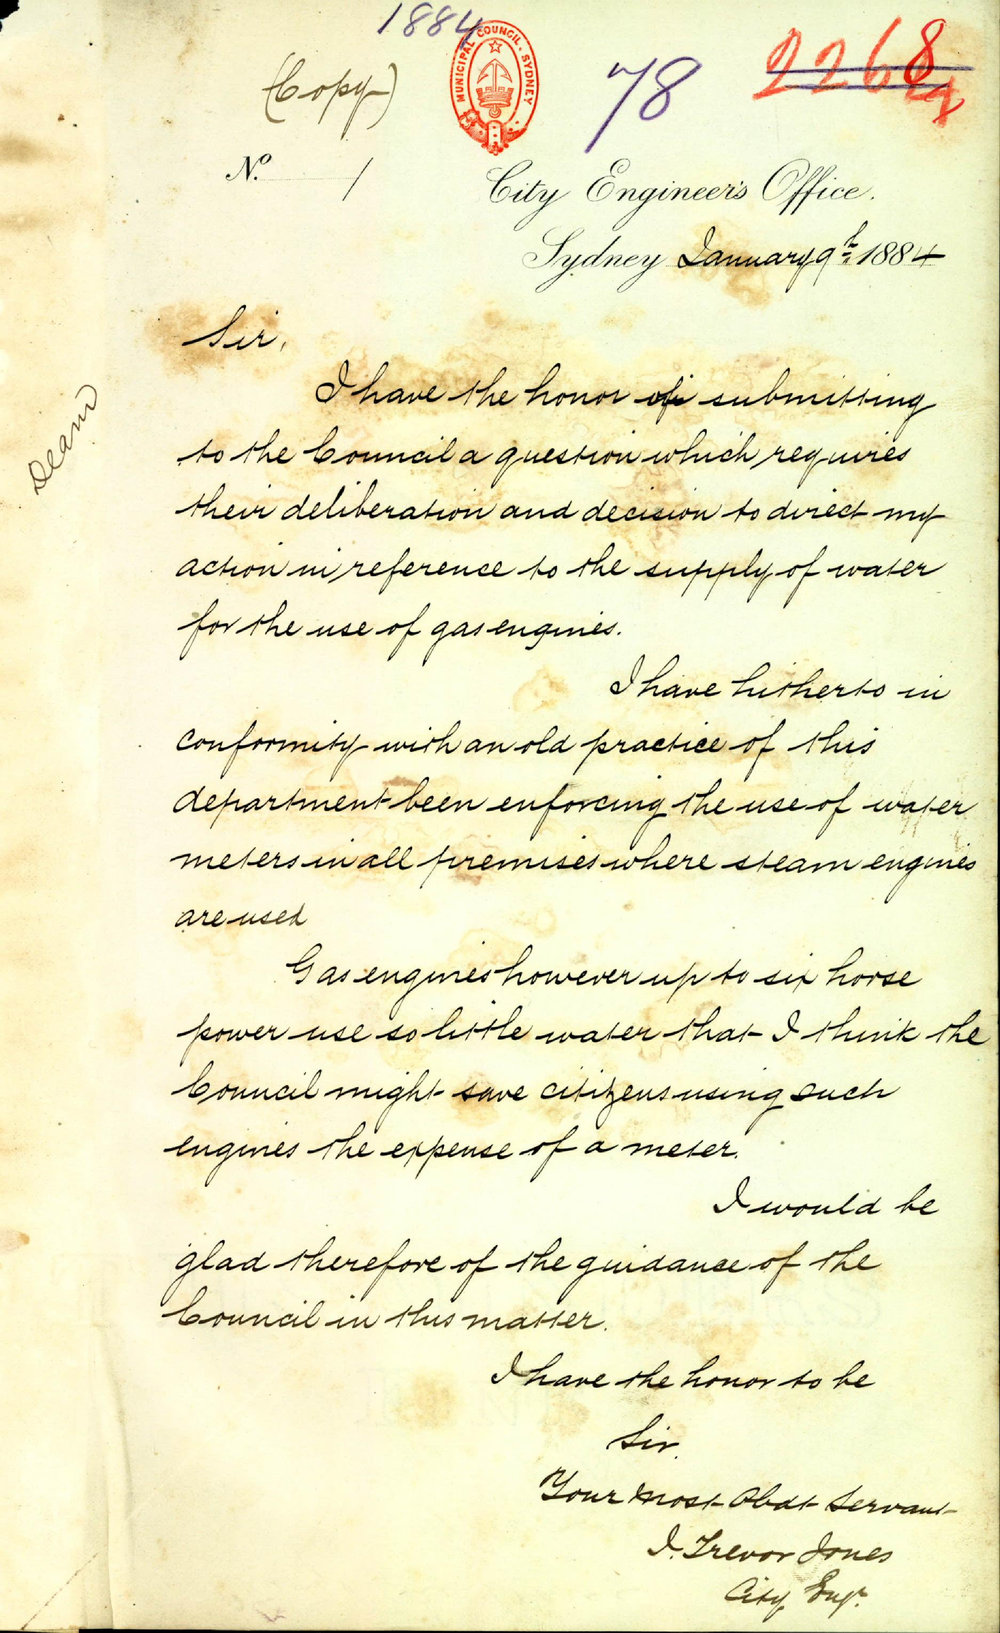 1884
(Copy)
MUNICIPAL COUNCIL · SYDNEY
78
2268
No. 1
City Engineer's Office.
Sydney January 9th 1884
Sir,
I have the honor of submitting
to the Council a question which requires
their deliberation and decision to direct my
action in reference to the supply of water
for the use of gas engines.
I have hitherto in
conformity with an old practice of this
department been enforcing the use of water
meters in all premises where steam engines
are used
Gas engines however up to six horse
power use so little water that I think the
Council might save citizens using such
engines the expense of a meter.
I would be
glad therefore of the guidance of the
Council in this matter.
I have the honor to be
Sir,
Your Most Obdt Servant
J. Trevor Jones
City Engr.